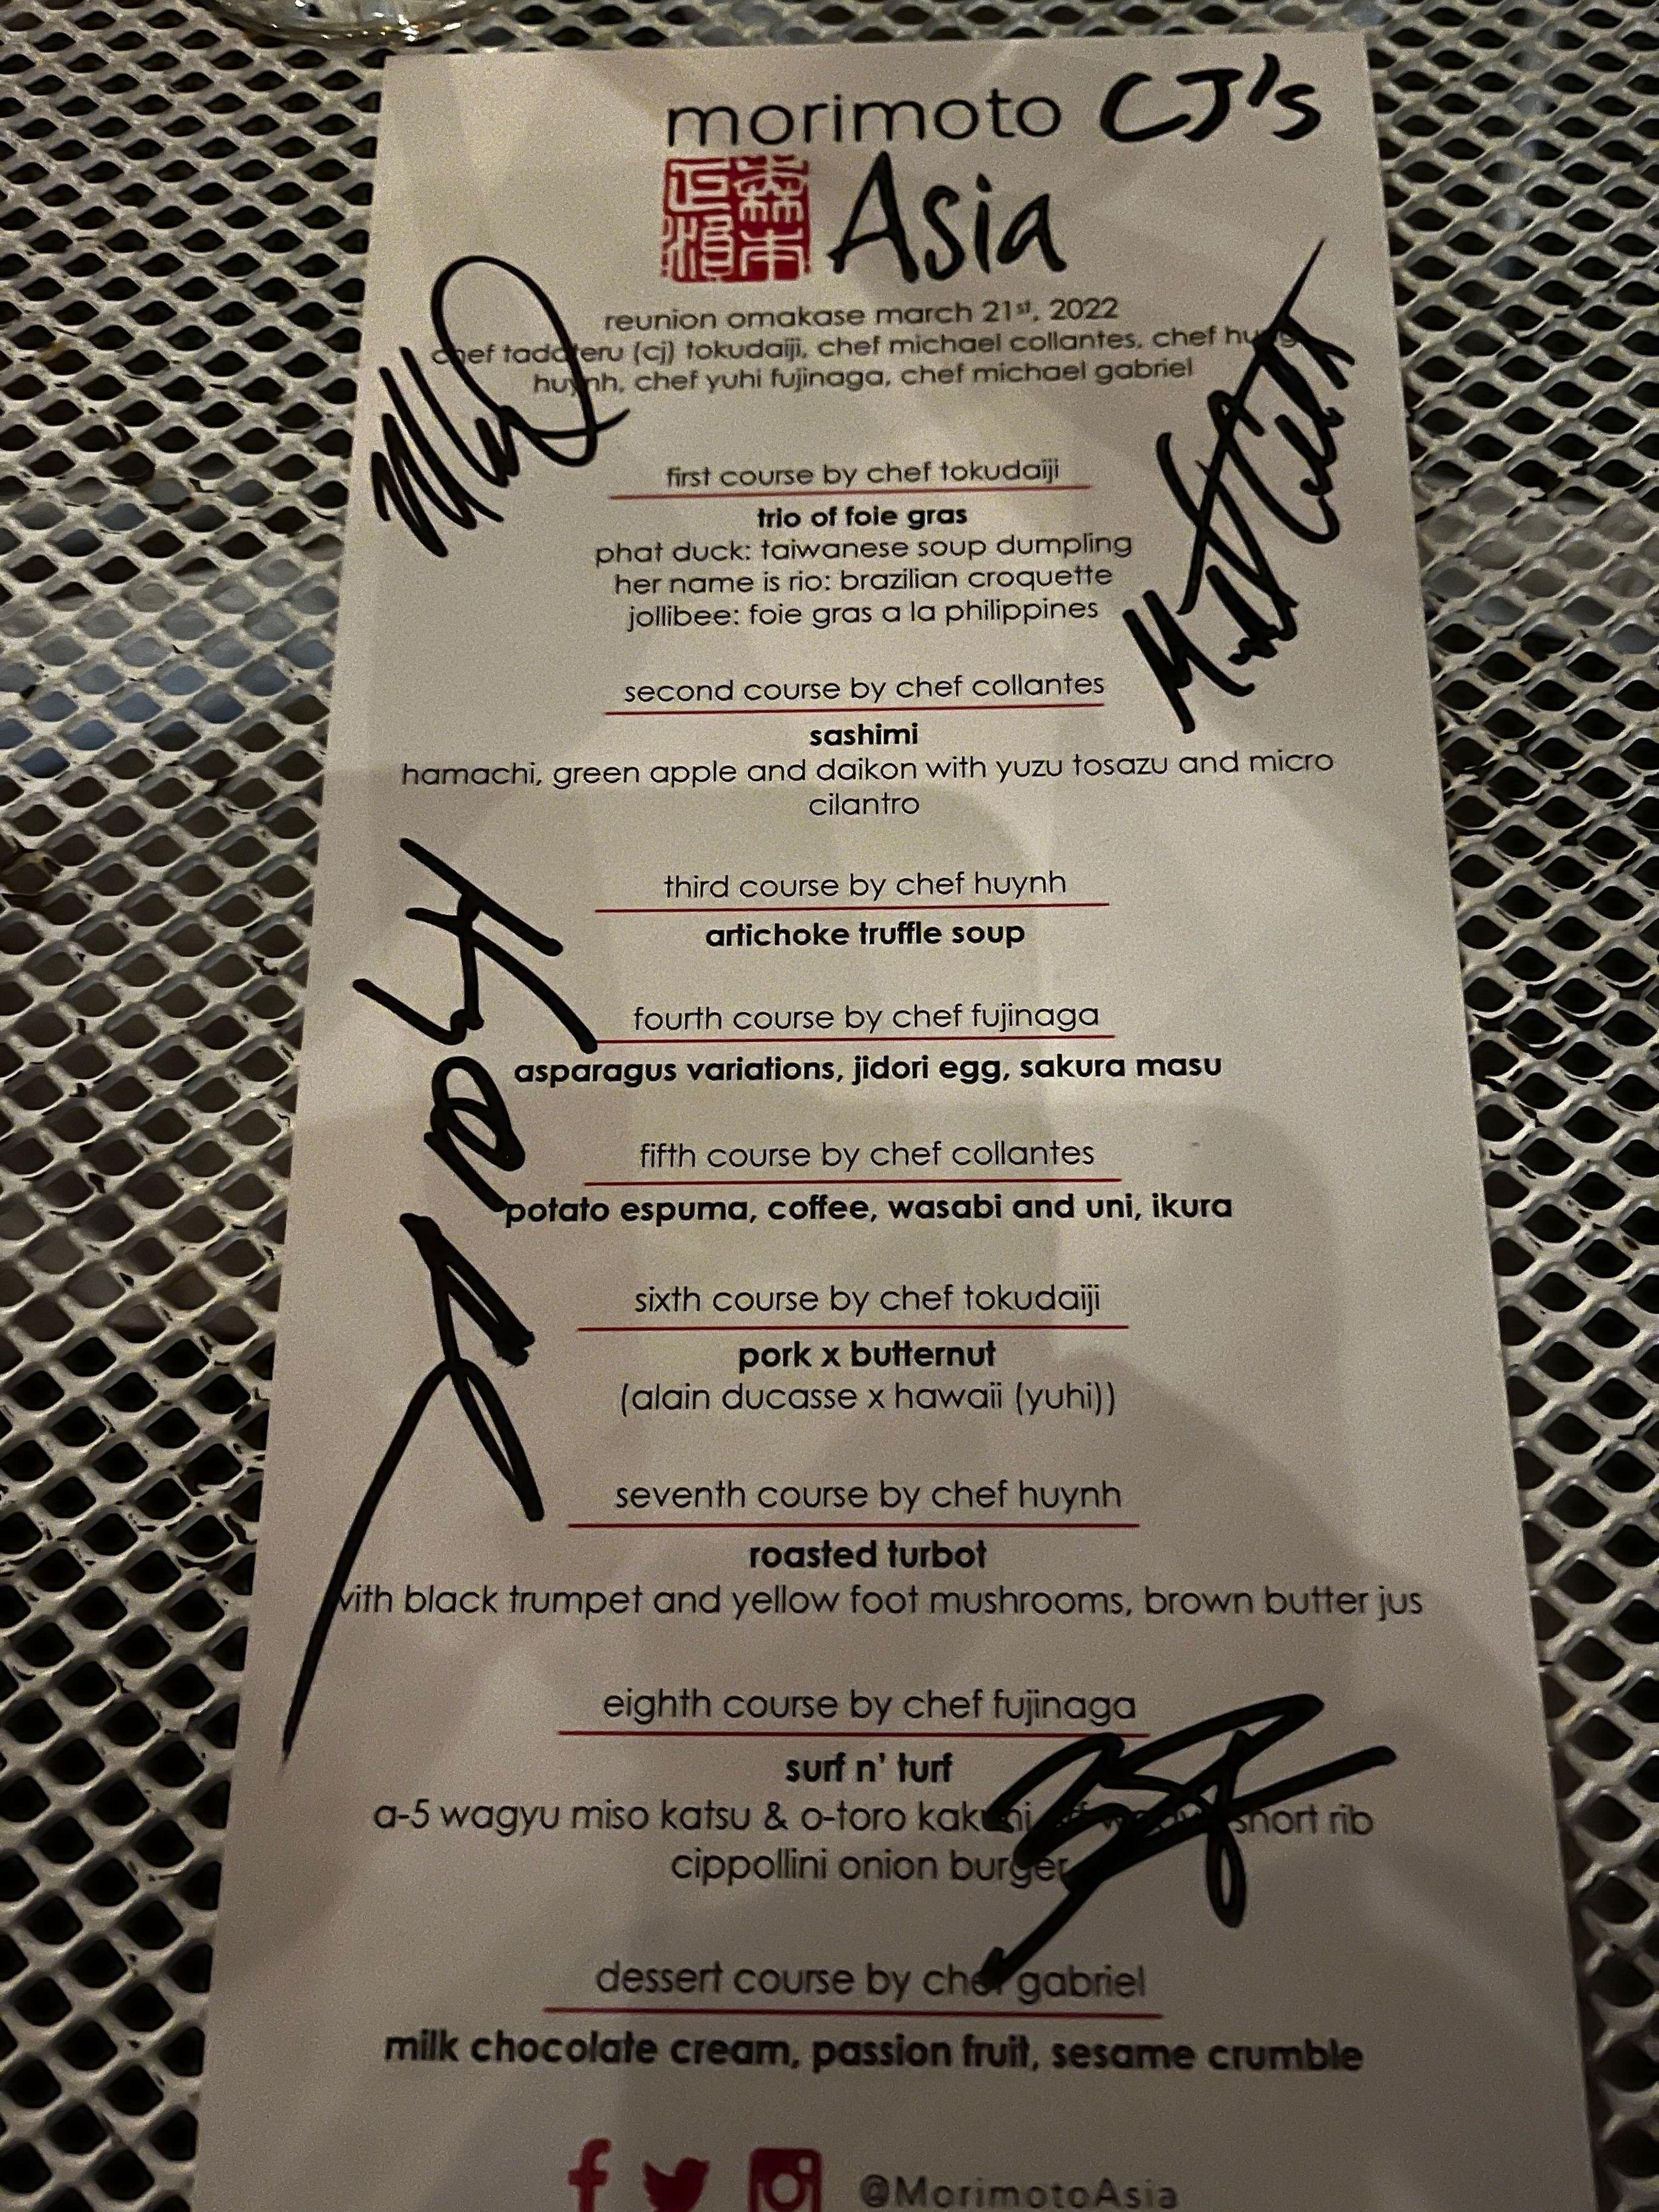 morimoto CJ's
森本
正治
Asia
reunion omakase march 21st, 2022
chef tadateru (cj) tokudaiji, chef michael collantes, chef hung
huynh, chef yuhi fujinaga, chef michael gabriel
first course by chef tokudaiji
trio of foie gras
phat duck: taiwanese soup dumpling
her name is rio: brazilian croquette
jollibee: foie gras a la philippines
second course by chef collantes
sashimi
hamachi, green apple and daikon with yuzu tosazu and micro
cilantro
third course by chef huynh
artichoke truffle soup
fourth course by chef fujinaga
asparagus variations, jidori egg, sakura masu
fifth course by chef collantes
potato espuma, coffee, wasabi and uni, ikura
sixth course by chef tokudaiji
pork x butternut
(alain ducasse x hawaii (yuhi))
seventh course by chef huynh
roasted turbot
with black trumpet and yellow foot mushrooms, brown butter jus
eighth course by chef fujinaga
surf n' turf
a-5 wagyu miso katsu & o-toro kakuni short rib
cippollini onion burger
dessert course by chef gabriel
milk chocolate cream, passion fruit, sesame crumble
@MorimotoAsia